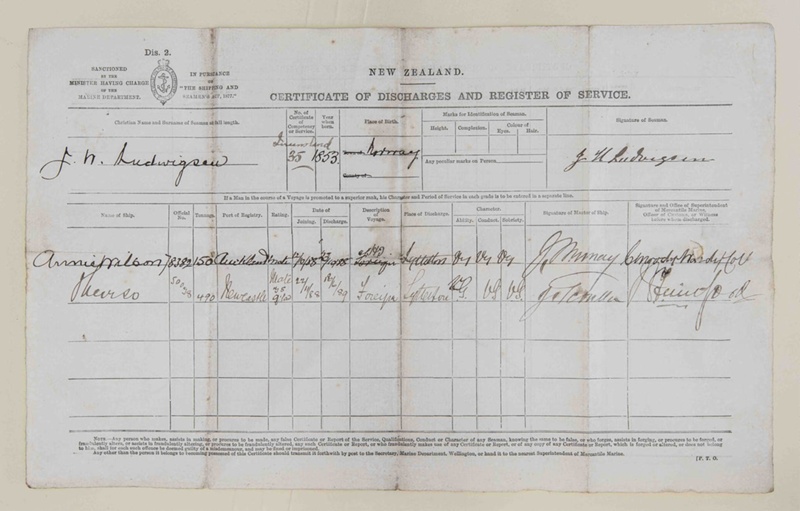 Dis. 2.
SANCTIONED
BY THE
MINISTER HAVING CHARGE
OF THE
MARINE DEPARTMENT.
IN PURSUANCE
OF
"THE SHIPPING AND
SEAMEN'S ACT, 1877."
NEW ZEALAND.
CERTIFICATE OF DISCHARGES AND REGISTER OF SERVICE.
Christian Name and Surname of Seaman at full length.
No. of Certificate of Competency or Service.
Year when born.
Place of Birth.
Marks for Identification of Seaman.
Height.
Complexion.
Colour of
Eyes.
Hair.
Any peculiar marks on Person
Signature of Seaman.
35
1853
Norway
Ludwigsen
J H Ludwigsen
If a Man in the course of a Voyage is promoted to a superior rank, his Character and Period of Service in each grade is to be entered in a separate line.
Name of Ship.
Official No.
Tonnage.
Port of Registry.
Rating.
Date of
Joining.
Discharge.
Description of Voyage.
Place of Discharge.
Character.
Ability.
Conduct.
Sobriety.
Signature of Master of Ship.
Signature and Office of Superintendent of Mercantile Marine, Officer of Customs, or Witness before whom discharged.
Annie Wilson
Auckland
Mate
Foreign
Lyttelton
VG
VG
VG
Murray
490
Newcastle
Mate
Foreign
Lyttelton
VG
VG
VG
NOTE.—Any person who makes, assists in making, or procures to be made, any false Certificate or Report of the Service, Qualifications, Conduct or Character of any Seaman, knowing the same to be false, or who forges, assists in forging, or procures to be forged, or
fraudulently alters, or assists in fraudulently altering, or procures to be fraudulently altered, any such Certificate or Report, or who fraudulently makes use of any Certificate or Report, or of any copy of any Certificate or Report, which is forged or altered, or does not belong
to him, shall for each such offence be deemed guilty of a misdemeanour, and may be fined or imprisoned.
Any other than the person it belongs to becoming possessed of this Certificate should transmit it forthwith by post to the Secretary, Marine Department, Wellington, or hand it to the nearest Superintendent of Mercantile Marine.
[P. T. O.